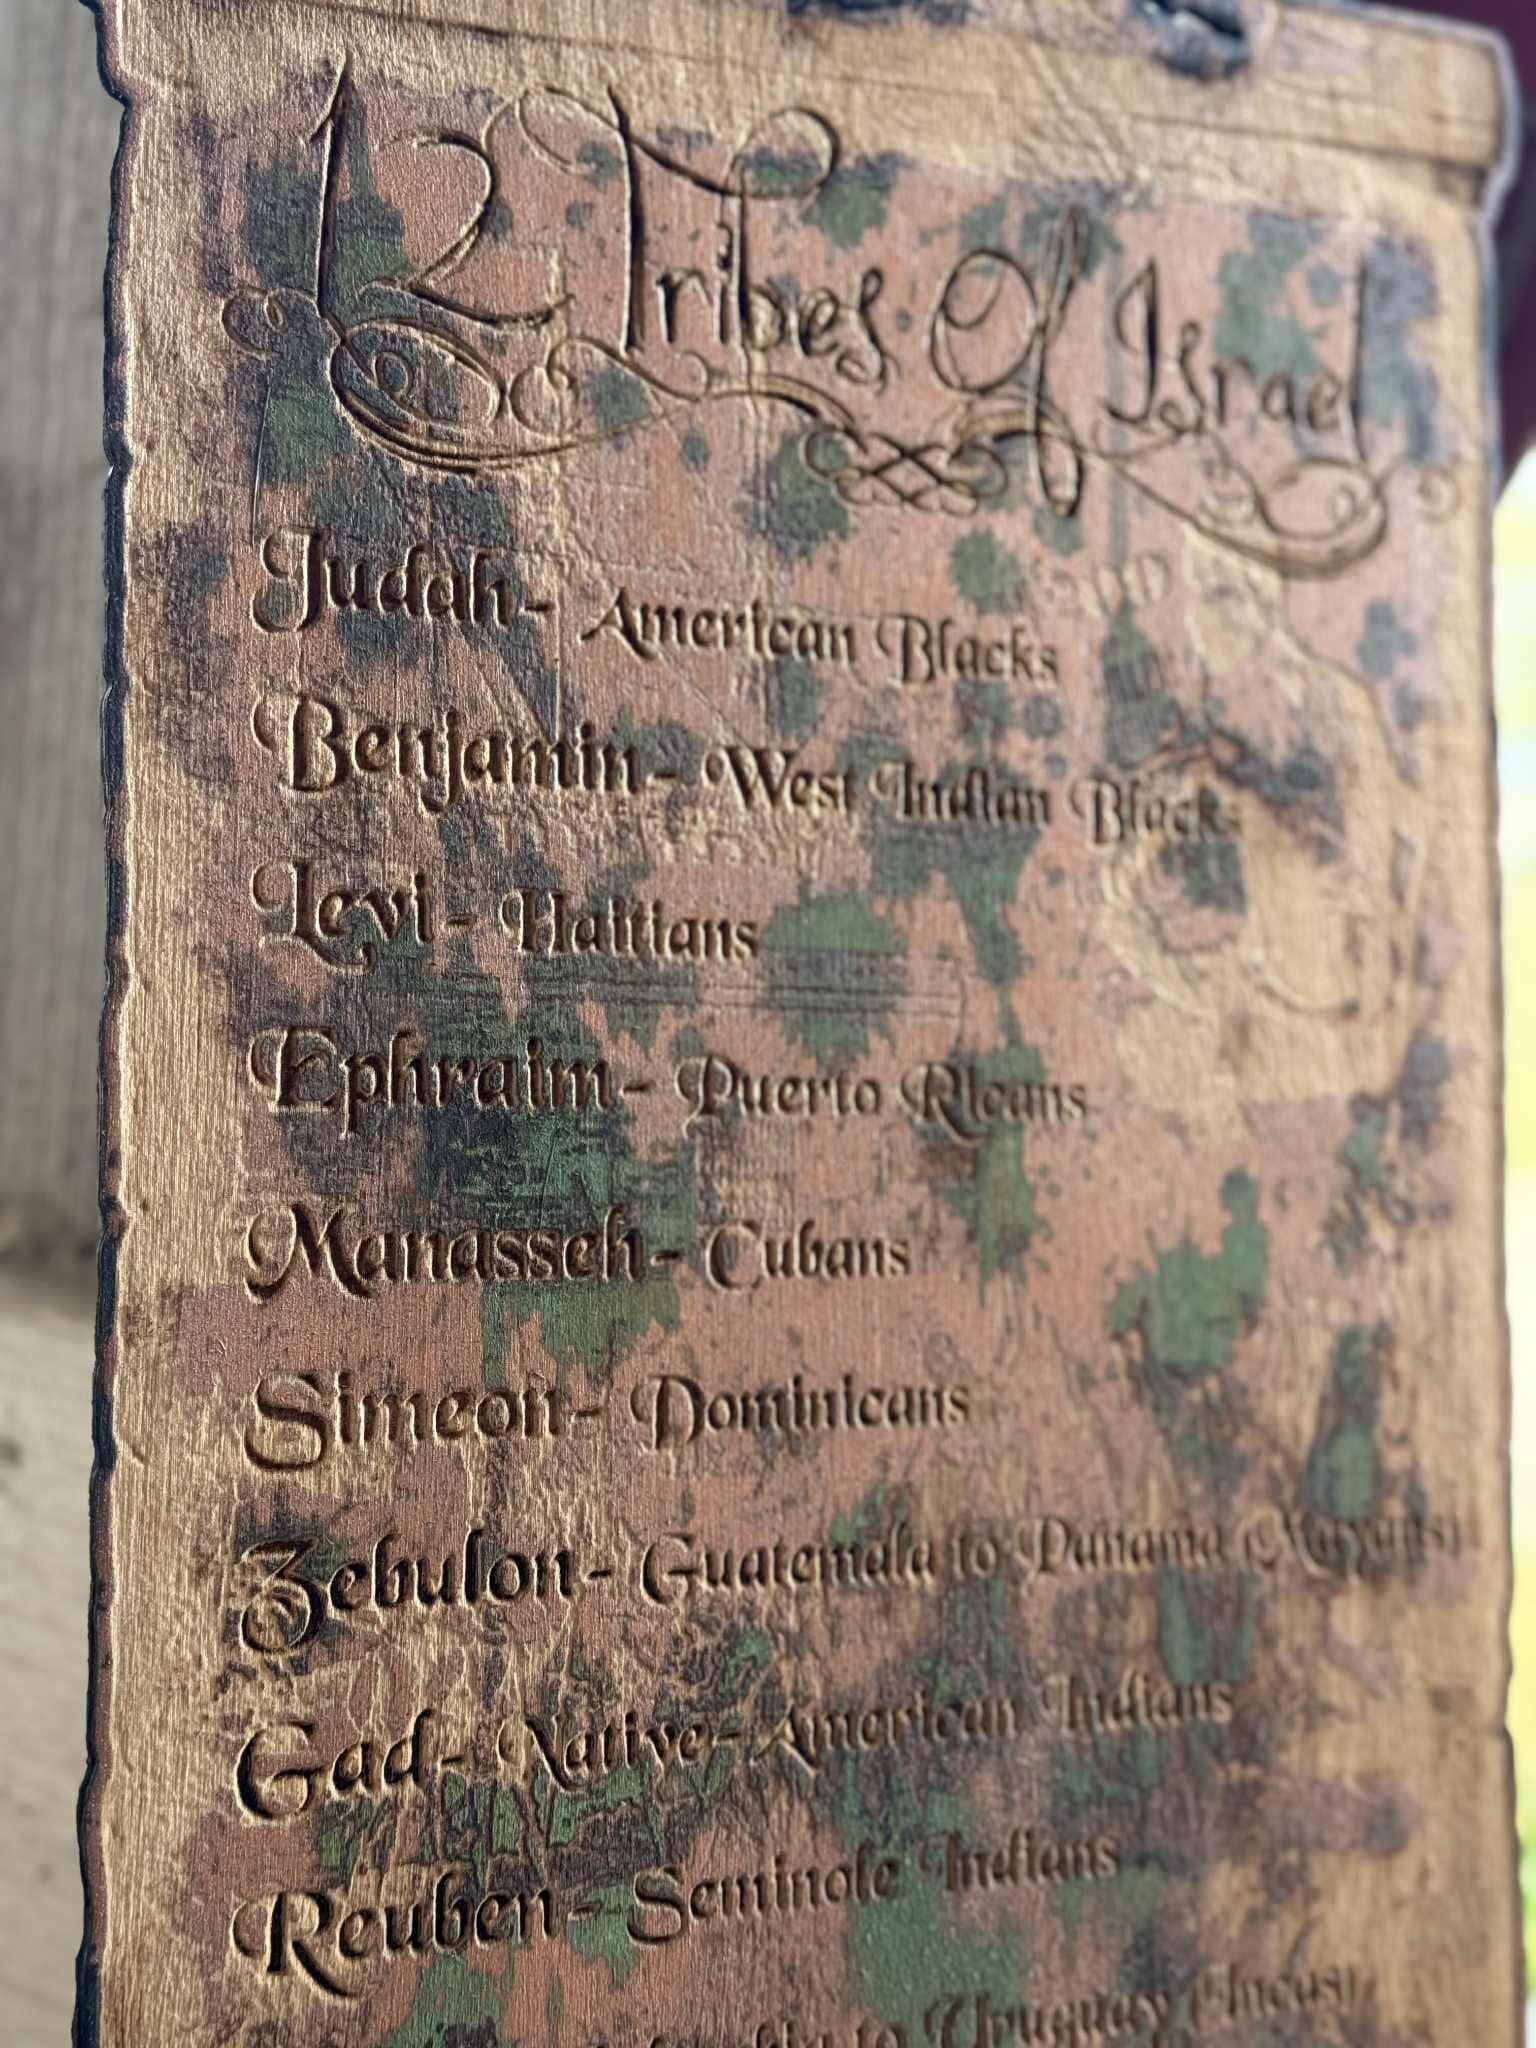 12 Tribes Of Israel
Judah - American Blacks
Benjamin - West Indian Blacks
Levi - Haitians
Ephraim - Puerto Ricans
Manasseh - Cubans
Simeon - Dominicans
Zebulon - Guatemala to Panama (Mayans)
Gad - Native-American Indians
Reuben - Seminole Indians
to Uruguay (Incas)